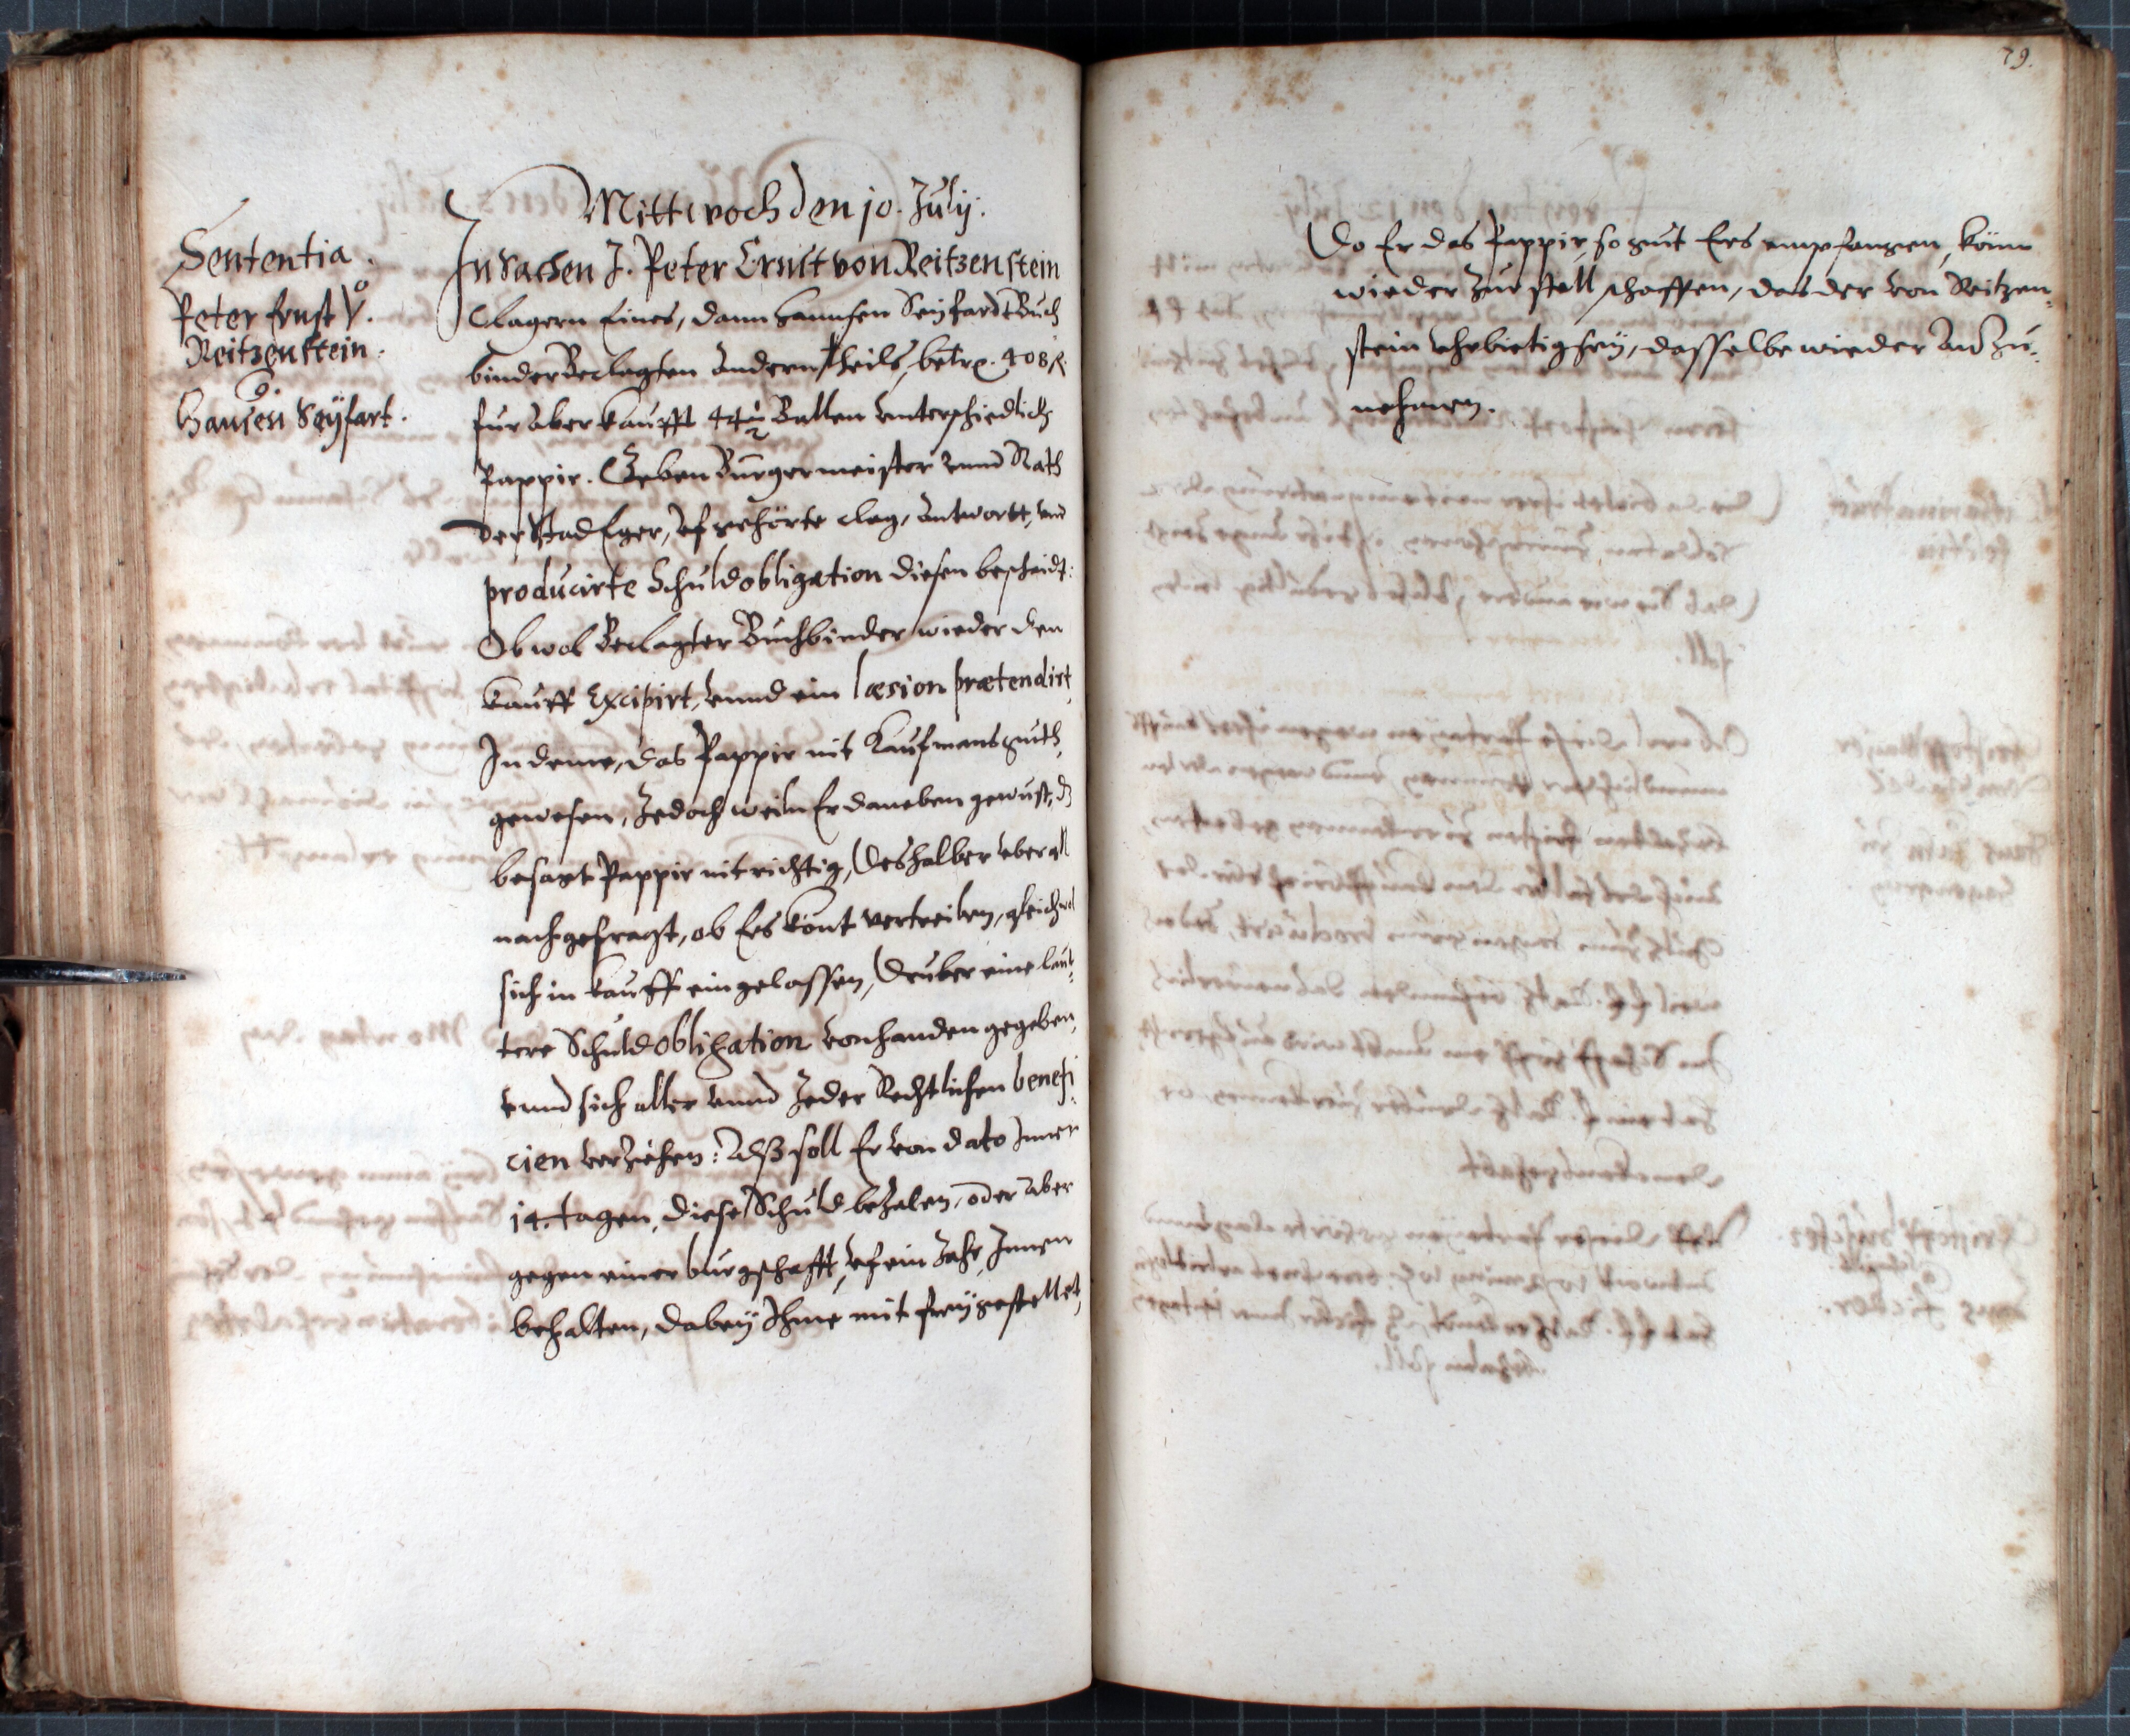 Mittwoch den 10. Julij.
Sententia.
Peter Ernst V.
Reitzenstein.
c.
Hansen Seÿfart.
In Sachen J. Peter Ernst von Reitzenstein
Clagern Eines, dann Hannsen Seyfardt Buch
binder Beclagten Andern theils, betrf. 408 fl.
fur aberkaufft 44½ Ballen vnterschiedlich
Pappir. Geben Burgermeister vnnd Rath
der Stad Eger, vf gehörte clag, Antwortt, vnd
producirte Schuldobligation diesen bescheidt:
Obwol Beclagter Buchbinder wieder den
kauff Excipirt, vnnd ein læsion prætendirt,
In deme, das Pappir nit Kaufmansguth,
gewesen, Jedoch weiln Er daneben gewust, dz
besagt Pappir nit richtig, deshalber vberall
nachgefragt, ob Ers könt vertreiben, gleichwol
sich in kauff eingelassen, druber eine laut-
tere Schuldobligation vonhanden gegeben,
vnnd sich aller vnnd Jeder Rechtlichen benefi-
cien verziehen: Alß soll Er von dato Inner
14. tagen, diese Schuld bezalen, oder aber
gegen einer burgschafft, vf ein Jahr, Innen
behalten, dabey Ihme mit freygestellet,
79.
Do Er das Pappir, so gut Ers empfangen, könn
wieder zur stell schaffen, das der von Reitzen-
stein vhrbietig sey, dasselbe wieder An zu-
nehmen.